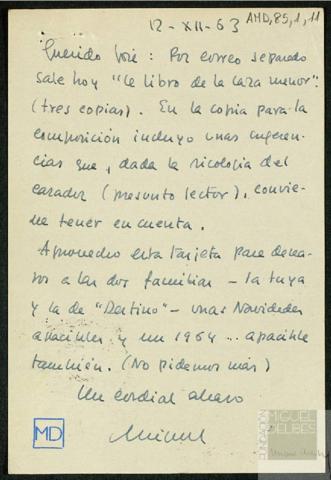 12-XII-63
AMD,85,1,11
Querido José: Por correo separado
sale hoy "El libro de la caza menor":
(tres copias). En la copia para la
composición incluyo unas sugeren-
cias que, dada la sicología del
cazador (presunto lector), convie-
ne tener en cuenta.
Aprovecho esta tarjeta para desea-
ros a las dos familias - la tuya
y la de "Destino" - unas Navidades
apacibles y un 1964 ... apacible
también. (No pidamos más)
Un cordial abrazo
Miguel
MD
FUNDACIÓN
MIGUEL
DELIBES